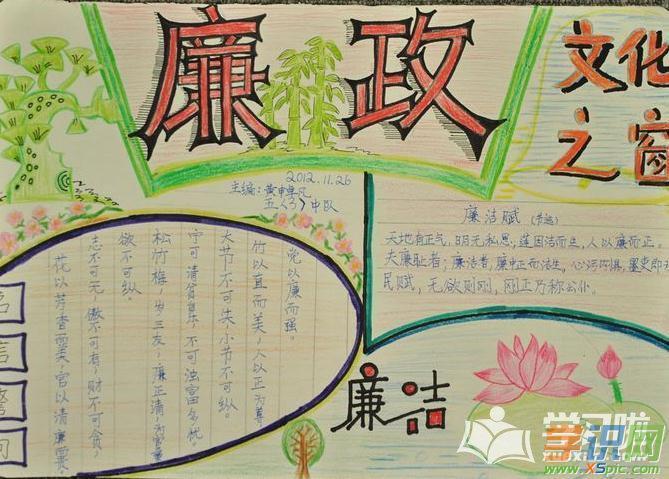 廉政
文化
之窗
2012.11.26
主编:黄申单凡
五〈3〉中队
廉洁赋
天地有正气,日月无私思,莲因洁而生,人以廉而正,
大廉耻者;廉洁者,廉中正而洁生,
民赋,无欲则刚,刚正乃称公仆。
党以廉而强。
竹以直而美,人以正为尊
大节不可失小节不可纵。
宁可清贫自乐,不可浊富多忧
松竹梅,岁三友,廉正清,为官
欲不可纵。
志不可无,傲不可有,财不可贪,
花以芳香而美,官以清廉而贵。
名
言
警
句
廉洁
学习啦
学识网
www.XSpic.com